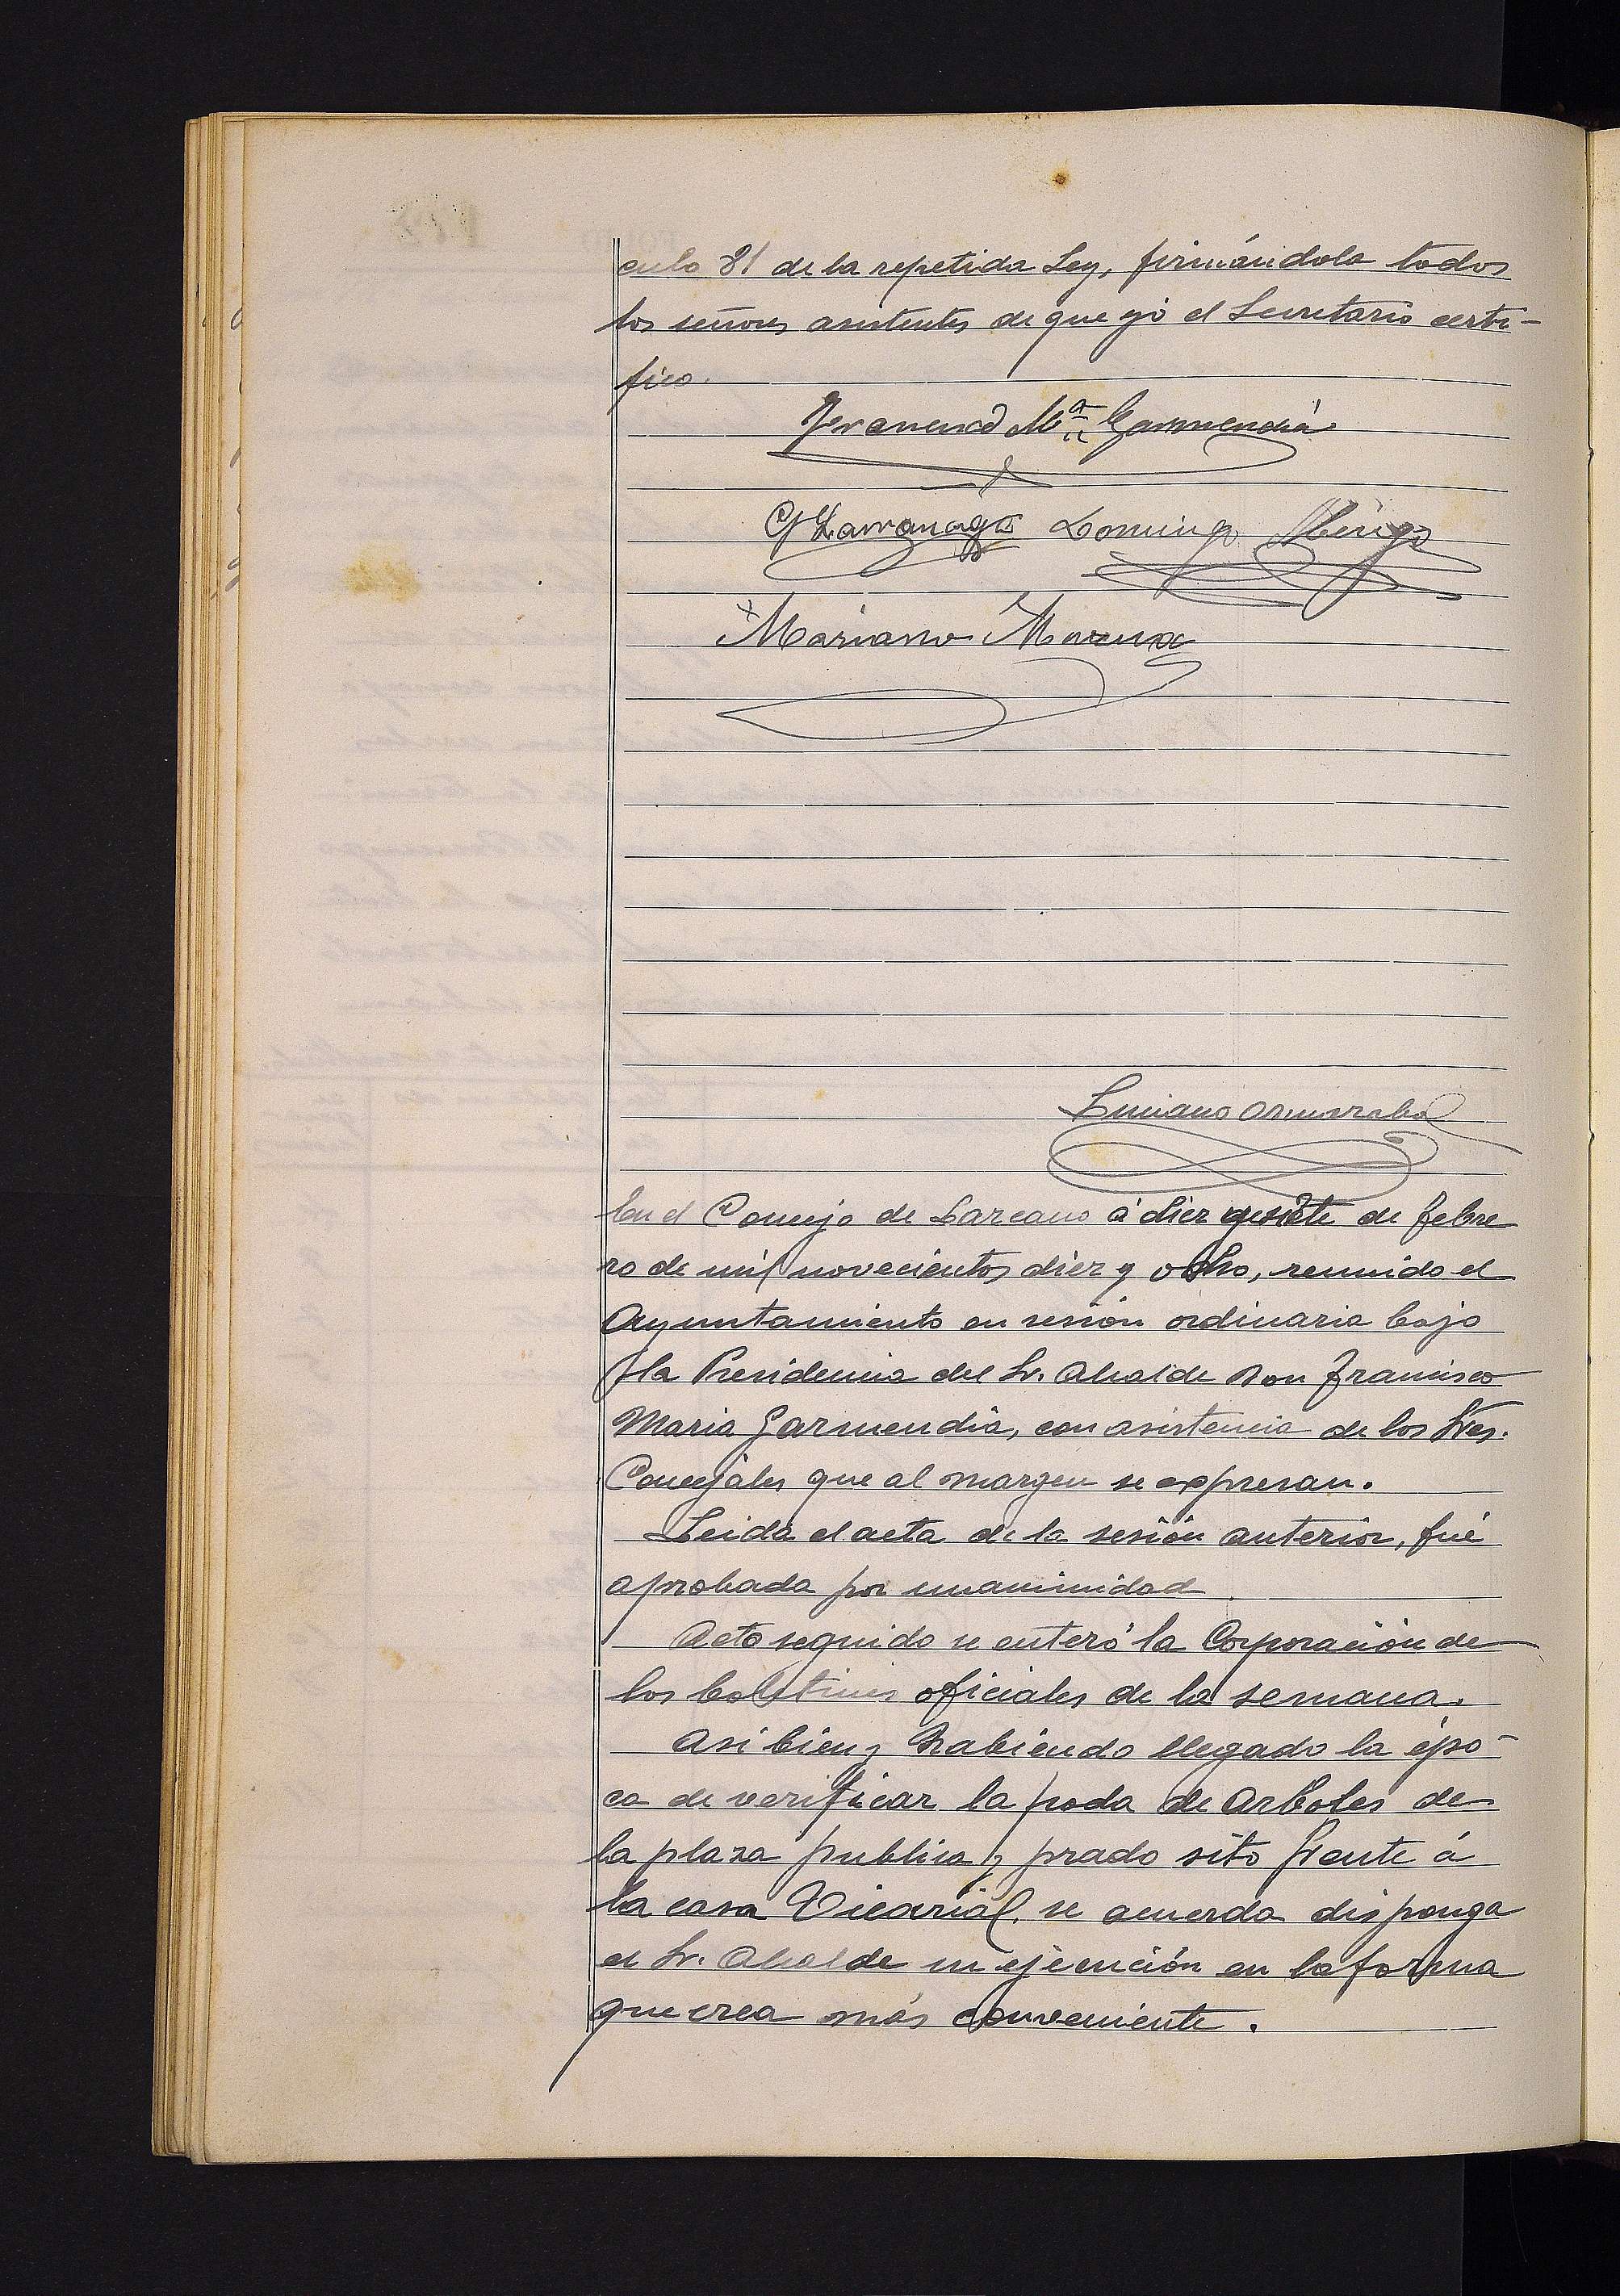 culo 81 de la repetida Ley, firmándola todos
los señores asistentes de que yo el Secretario certi-
fico.
Francisco Mª Garmendia
G Larrañaga Domingo
Mariano
Luciano
En el Concejo de Lazcano á diez y siete de febre
ro de mil novecientos diez y ocho, reunido el
Ayuntamiento en sesión ordinaria bajo
la Presidencia del Sr. Alcalde Don Francisco
Maria Garmendia, con asistencia de los Sres.
Concejales que al margen se expresan.
Leida el acta de la sesión anterior, fué
aprobada por unanimidad
Acto seguido se enteró la Corporación de
los boletines oficiales de la semana.
Asi bien, habiendo llegado la épo-
ca de verificar la poda de arboles de
la plaza publica y prado sito frente á
la casa Vicarial. se acuerda disponga
el Sr. Alcalde su ejecución en la forma
que crea más conveniente.